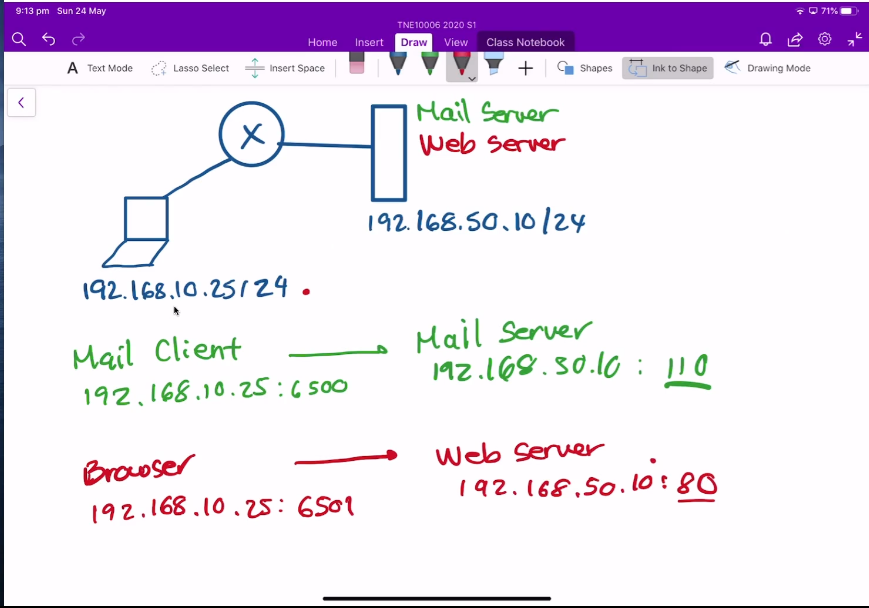 9:13 pm Sun 24 May
71%
TNE10006 2020 S1
Home Insert Draw View Class Notebook
A Text Mode Lasso Select Insert Space Shapes Ink to Shape Drawing Mode
X
Mail Server
Web Server
192.168.50.10/24
192.168.10.25/24
Mail Client
Mail Server
192.168.10.25:6500
192.168.50.10 : 110
Browser
Web Server
192.168.10.25: 6501
192.168.50.10:80